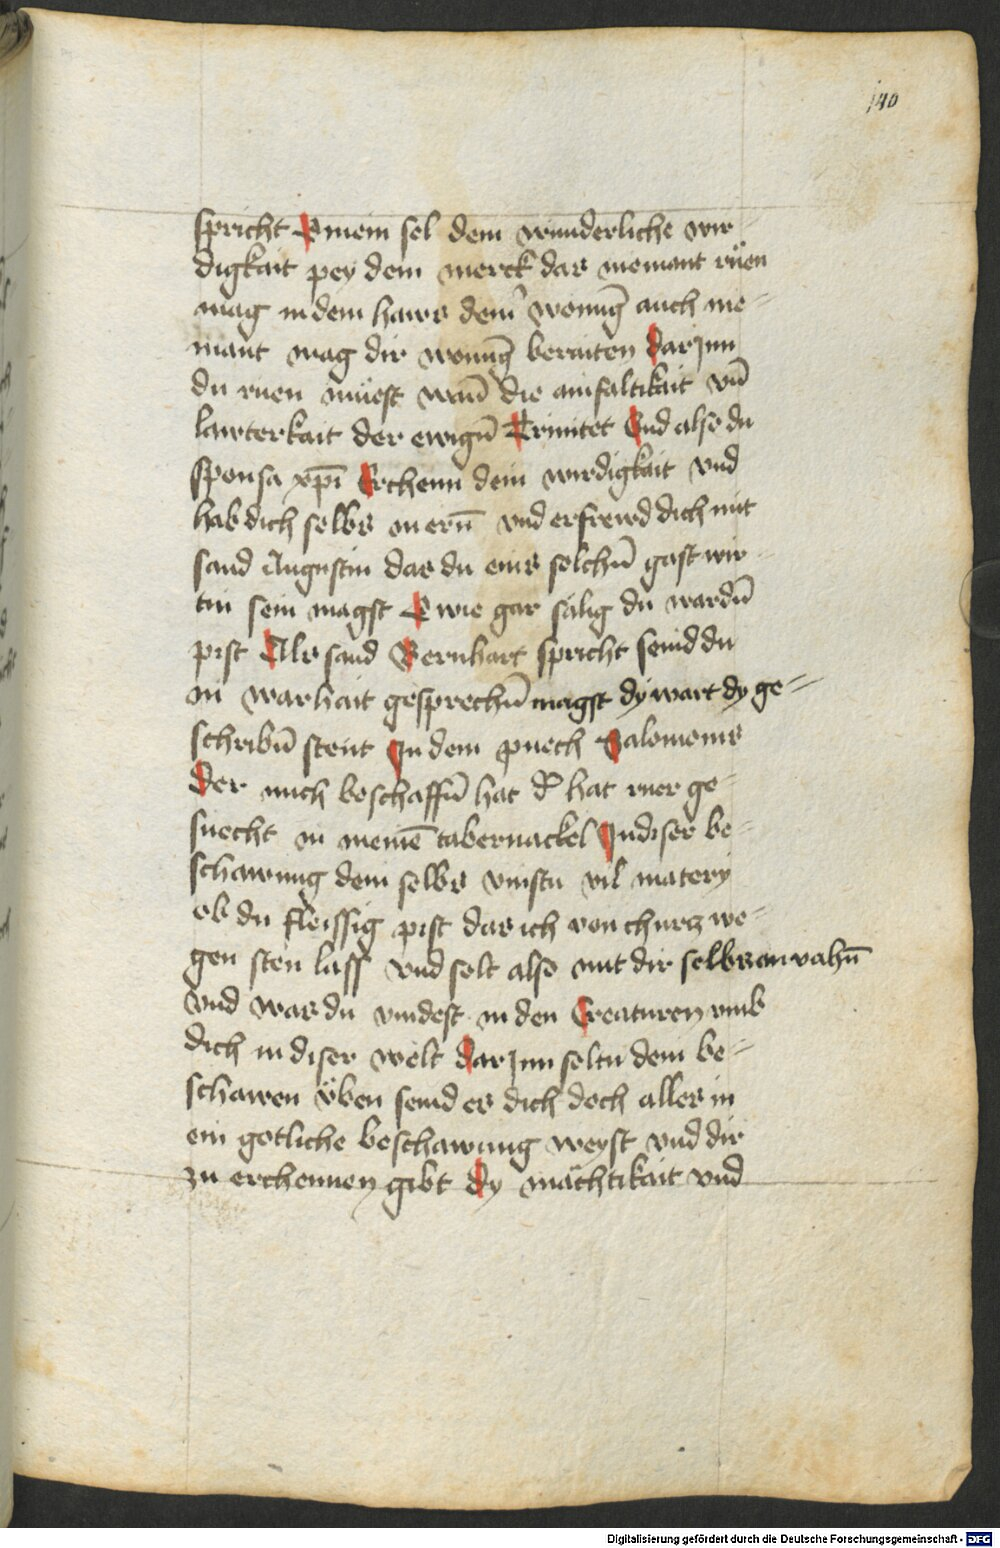 140
spricht O mein sel dein wunderliche wir
digkait pey dem merck das niemant rüen
mag in dem haws deinˀ wonūg auch nie=
mant mag dir wonūg beraiten darJnn
du ruen müest wañ die ainfaltikait vñ
lawterkait der ewigñ Trinitet Und also du
sponsa xp̄i Erchenn dein wirdigkait vnd
hab dich selbs in ern̄ vnd erfrewd dich mit
sand Augustin das du eins solchñ gast wir
tin sein magst O wie gar sälig du wordñ
pist Als sand Bernhart spricht seind du
in warhait gesprechñ magst dy wart dy ge=
schribñ stent Jn dem puech Salomonis
Der mich beschaffñ hat dˀ hat rüer ge=
suecht in meinē tabernackel Jn diser be=
schawung dein selbs vinstu vil matery
ob du fleissig pist das ich von churcz we=
gen sten lass vnd solt also mit dir selbs an vahñ
vnd was du vindest in den Creaturen vmb
dich in diser welt darJnn soltu dein be=
schawen üben seind es dich doch alles in
ein gotliche beschawung weyst vnd dir
zu erchennen gibt dy mächtikait vnd
Digitalisierung gefördert durch die Deutsche Forschungsgemeinschaft - DFG